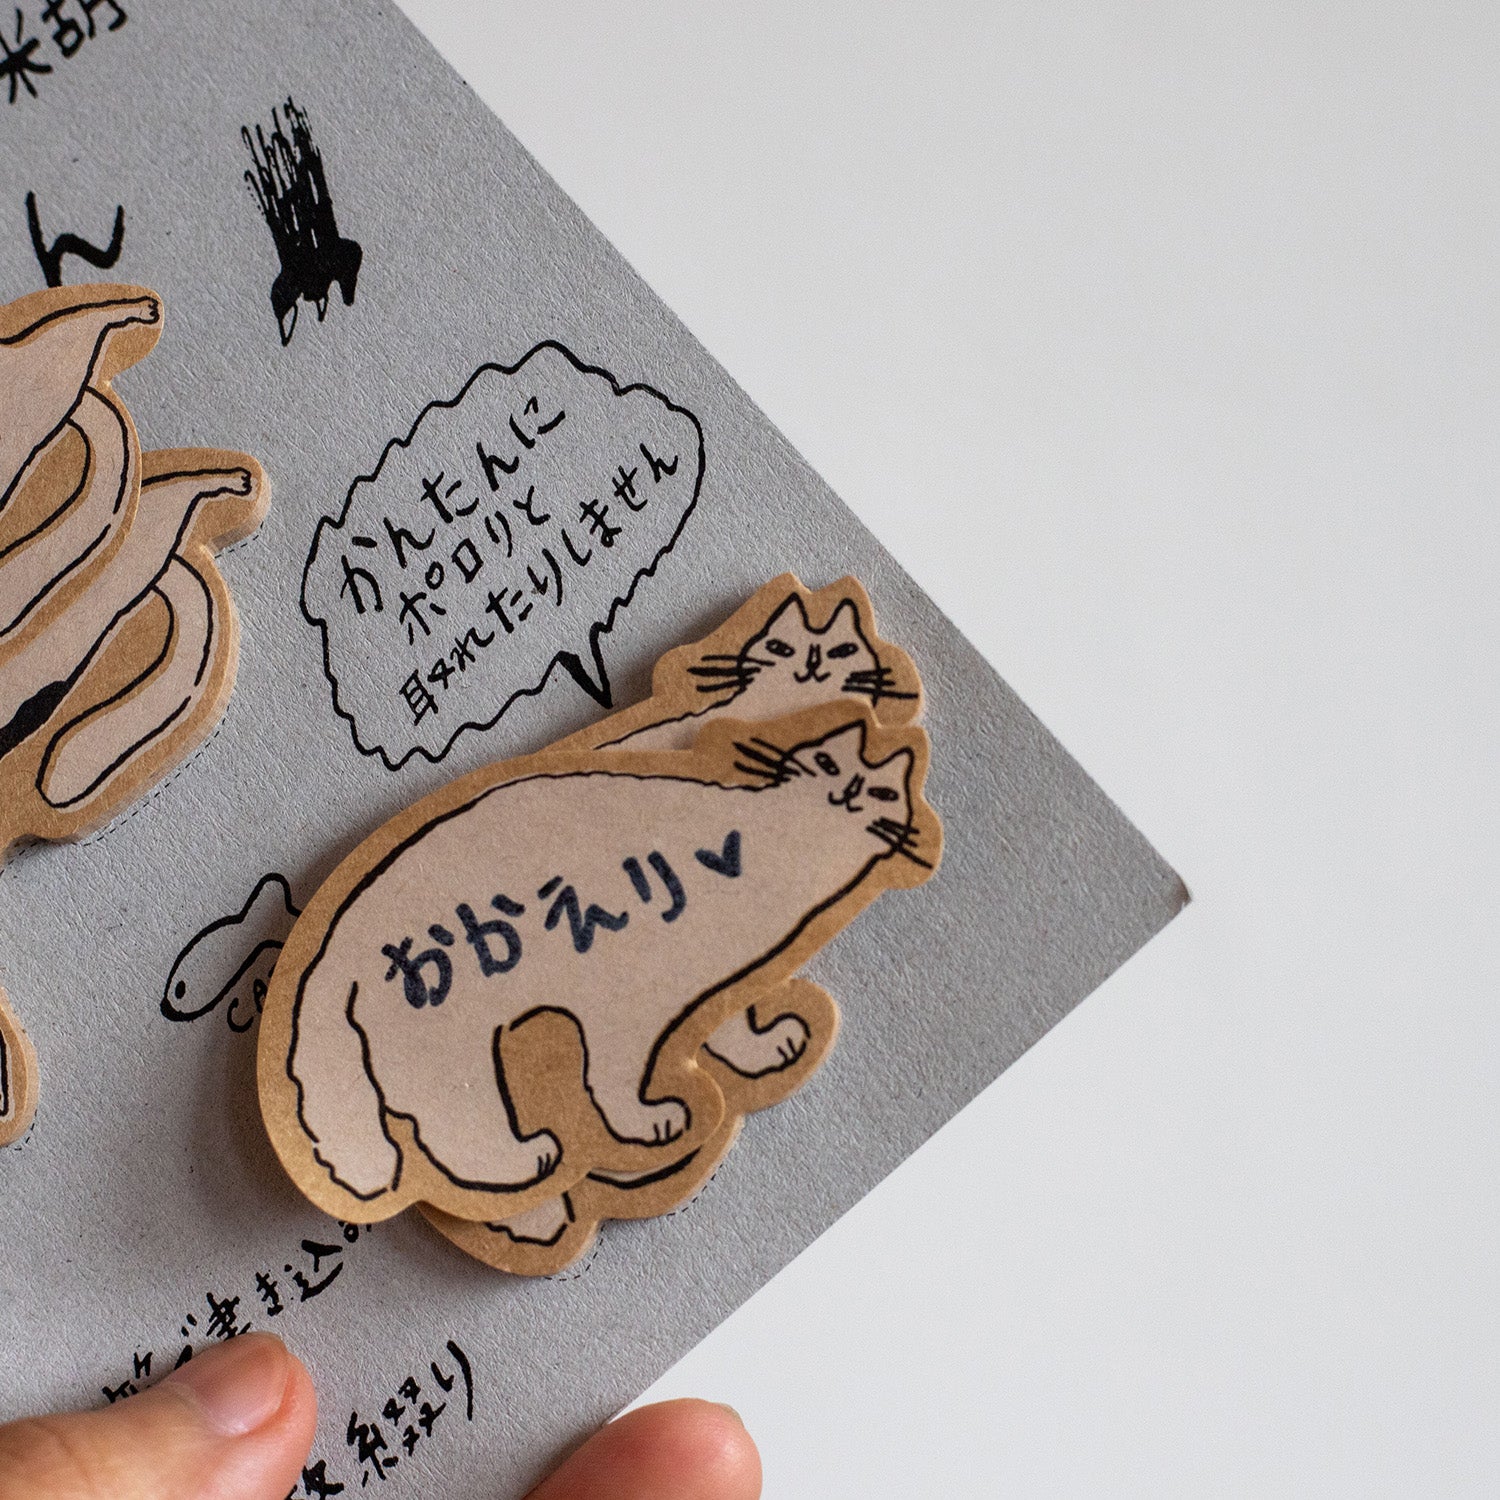 米胡
ん
かんたんに
ポロリと
取れたりしません
おかえり♥
CA
で書き込み
綴り